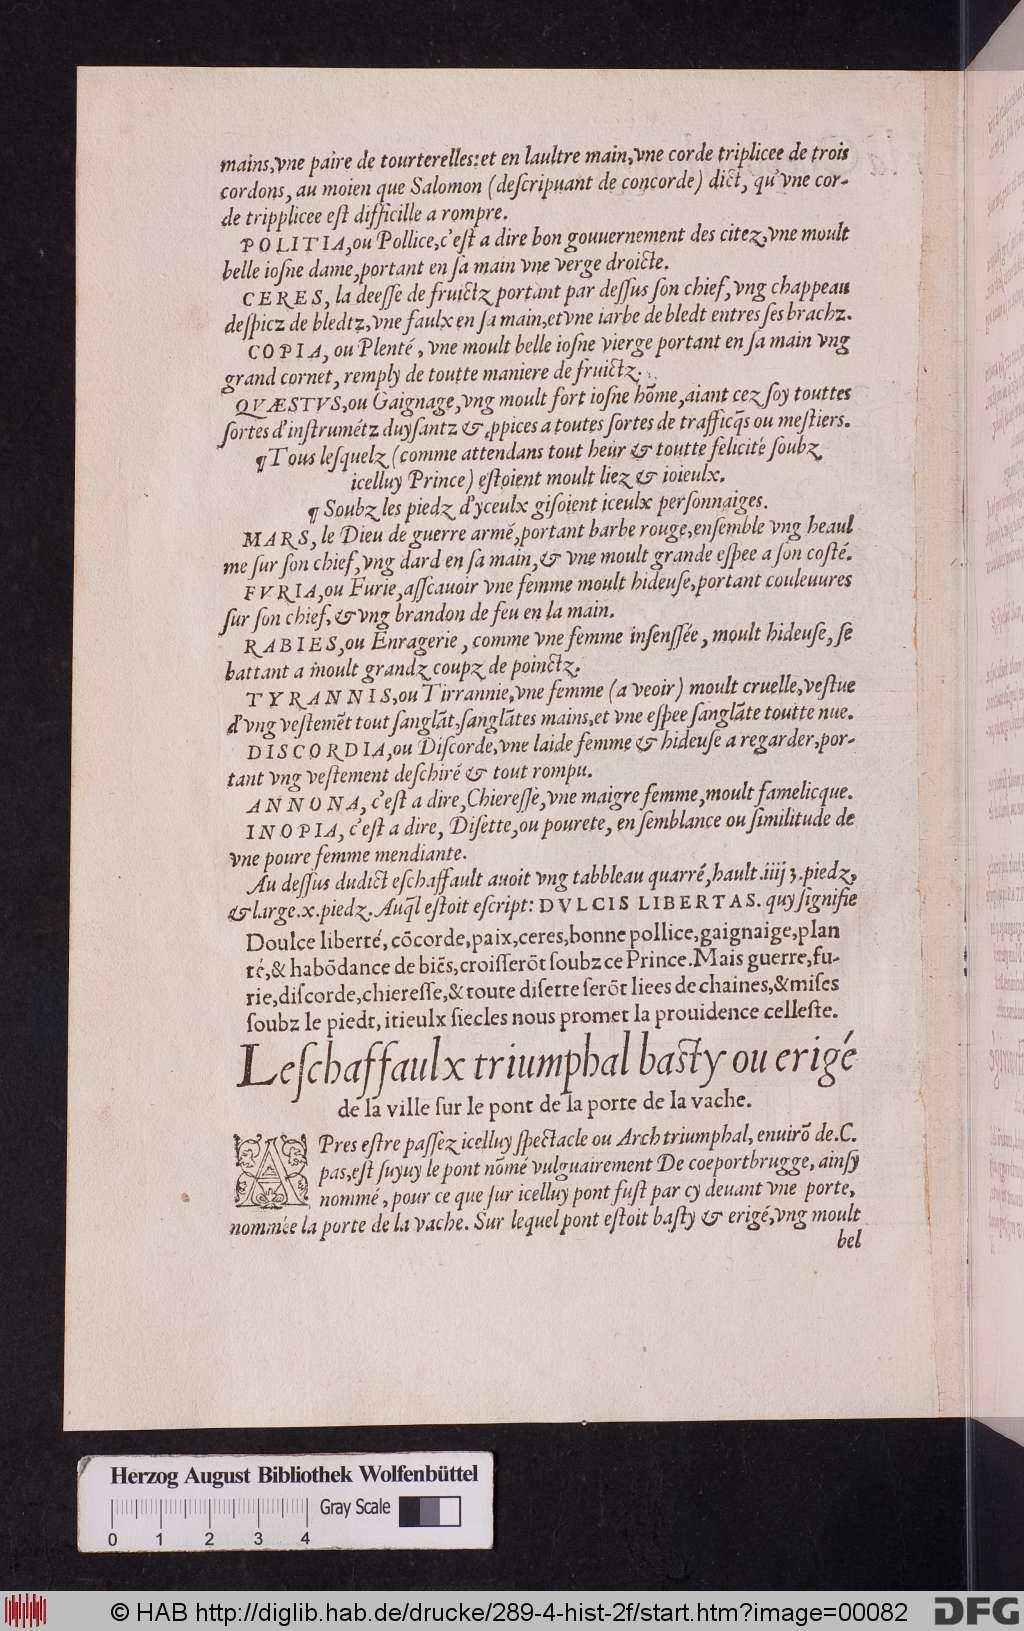 mains, vne paire de tourterelles: et en laultre main, vne corde triplicee de trois
cordons, au moien que Salomon (deſcripuant de concorde) dict, qu'vne cor-
de tripplicee eſt difficille a rompre.
POLITIA, ou Pollice, c'eſt a dire bon gouuernement des citez, vne moult
belle ioſne dame, portant en ſa main vne verge droicte.
CERES, la deeſſe de fruictz portant par deſſus ſon chief, vng chappeau
deſpicz de bledtz, vne faulx en ſa main, et vne iarbe de bledt entres ſes brachz.
COPIA, ou Plenté, vne moult belle ioſne vierge portant en ſa main vng
grand cornet, remply de toutte maniere de fruictz.
QVÆSTVS, ou Gaignage, vng moult fort ioſne hõme, aiant cez ſoy touttes
ſortes d'inſtrumétz duyſantz & ꝓpices a toutes ſortes de trafficq̃s ou meſtiers.
¶ Tous leſquelz (comme attendans tout heur & toutte felicité ſoubz
icelluy Prince) eſtoient moult liez & ioieulx.
¶ Soubz les piedz d'yceulx giſoient iceulx perſonnaiges.
MARS, le Dieu de guerre armé, portant barbe rouge, enſemble vng heaul
me ſur ſon chief, vng dard en ſa main, & vne moult grande eſpee a ſon coſté.
FVRIA, ou Furie, aſſcauoir vne femme moult hideuſe, portant couleuures
ſur ſon chief, & vng brandon de feu en la main.
RABIES, ou Enragerie, comme vne femme inſenſſée, moult hideuſe, ſe
battant a moult grandz coupz de poinctz.
TYRANNIS, ou Tirrannie, vne femme (a veoir) moult cruelle, veſtue
d'vng veſtemẽt tout ſanglãt, ſanglãtes mains, et vne eſpee ſanglãte toutte nue.
DISCORDIA, ou Diſcorde, vne laide femme & hideuſe a regarder, por-
tant vng veſtement deſchiré & tout rompu.
ANNONA, c'eſt a dire, Chiereſſe, vne maigre femme, moult famelicque.
INOPIA, c'eſt a dire, Diſette, ou pourete, en ſemblance ou ſimilitude de
vne poure femme mendiante.
Au deſſus dudict eſchaffault auoit vng tabbleau quarré, hault .iiij ȝ. piedz,
& large .x. piedz. Auq̃l eſtoit eſcript: DVLCIS LIBERTAS. quy ſignifie
Doulce liberté, cõcorde, paix, ceres, bonne pollice, gaignaige, plan
té, & habõdance de biẽs, croiſſerõt ſoubz ce Prince. Mais guerre, fu-
rie, diſcorde, chiereſſe, & toute diſette ſerõt liees de chaines, & miſes
ſoubz le piedt, itieulx ſiecles nous promet la prouidence celleſte.
Leſchaffaulx triumphal baſty ou erigé
de la ville ſur le pont de la porte de la vache.
APres eſtre paſſez icelluy ſpectacle ou Arch triumphal, enuirõ de .C.
pas, eſt ſuyuy le pont nõmé vulguairement De coeportbrugge, ainſy
nommé, pour ce que ſur icelluy pont fuſt par cy deuant vne porte,
nommée la porte de la vache. Sur lequel pont eſtoit baſty & erigé, vng moult
bel
Herzog August Bibliothek Wolfenbüttel
Gray Scale
0 1 2 3 4
© HAB http://diglib.hab.de/drucke/289-4-hist-2f/start.htm?image=00082
DFG